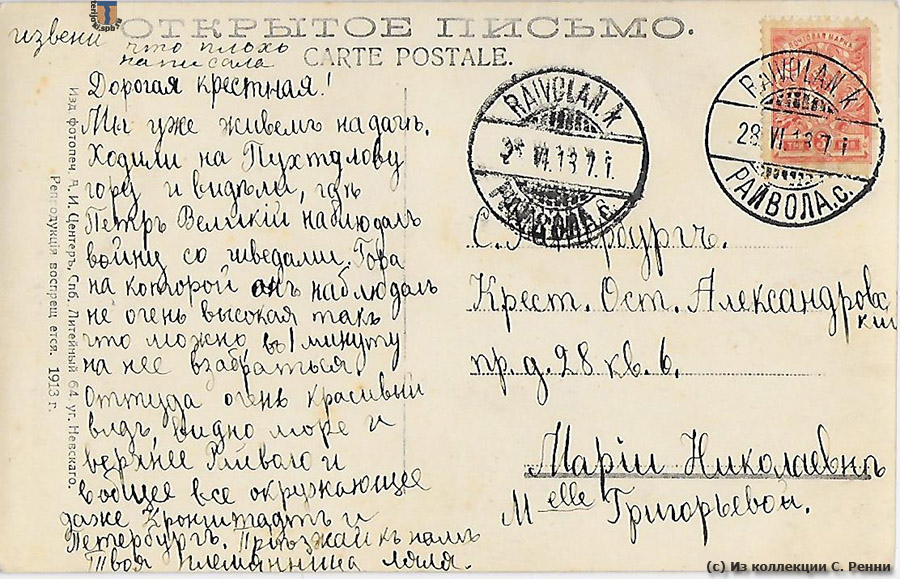 ОТКРЫТОЕ ПИСЬМО.
CARTE POSTALE.
извени что плохъ
написала
Дорогая крестная!
Мы уже живемъ на дачѣ.
Ходили на Пухтолову
гору и видѣли, гдѣ
Петръ Великій наблюдалъ
войну со шведами. Гора
на которой онъ наблюдалъ
не очень высокая такъ
что можно въ 1 минуту
на нее взабраться.
Оттуда очень красивый
видъ, видно море и
верхнее Райвало и
вобщее все окружающее
даже Кронштадтъ и
Петербургъ. Приѣзжай къ намъ
Твоя племянница Ляля.
RAIVOLA N.K
VI.13 7.i.
РАЙВОЛА.С.
RAIVOLA N.K
28.VI.13 7.i
РАЙВОЛА.С.
ПОЧТОВАЯ МАРКА
С. Петербургъ.
Крест. Ост. Александровс
кій
пр. д. 28 кв. 6.
Маріи Николаевнѣ
Melle Григорьевой.
Изд. фотопеч. А. И. Центеръ, Спб. Литейный 64 уг. Невскаго.
Репродукція воспрещается. 1913 г.
(c) Из коллекции С. Ренни